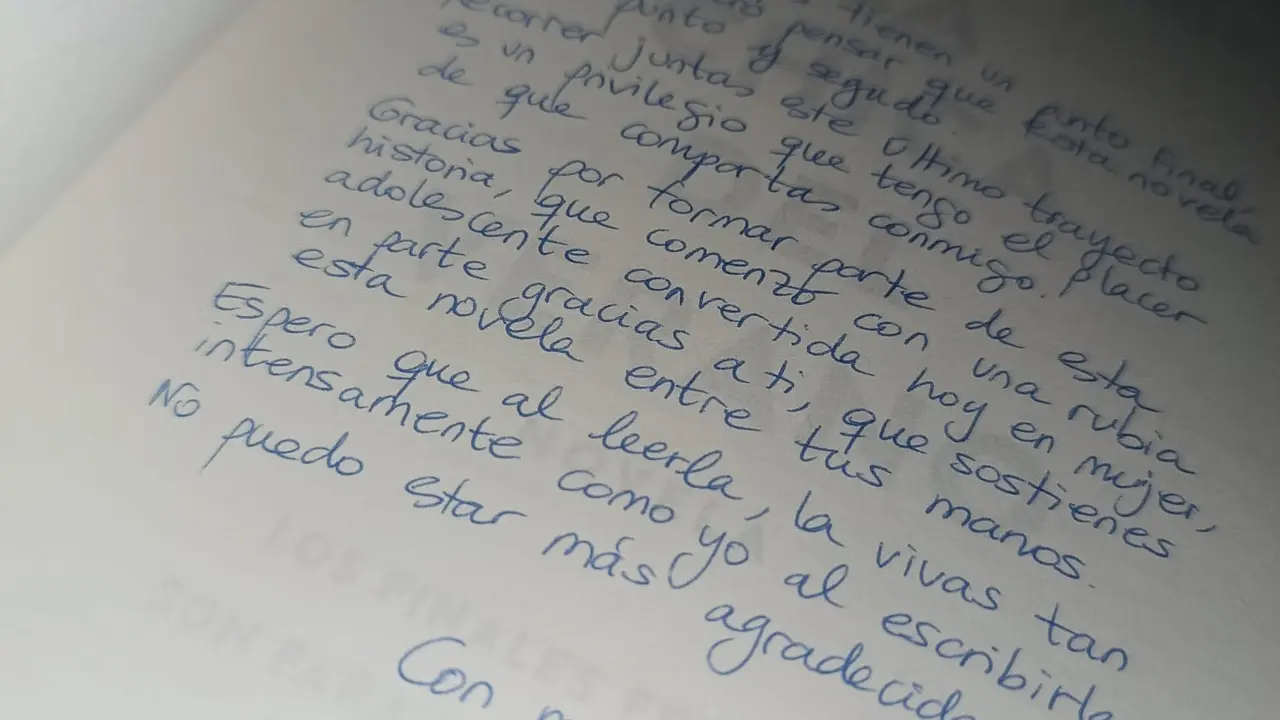 tienen un punto final,
pensar que esta novela
punto y seguido.
recorrer juntas este último trayecto
es un privilegio que tengo el placer
de que compartas conmigo.
Gracias por formar parte de esta
historia, que comenzó con una rubia
adolescente convertida hoy en mujer,
en parte gracias a ti, que sostienes
esta novela entre tus manos.
Espero que al leerla, la vivas tan
intensamente como yo al escribirla
No puedo estar más agradecida
Con
LOS FINALES
SON PAR